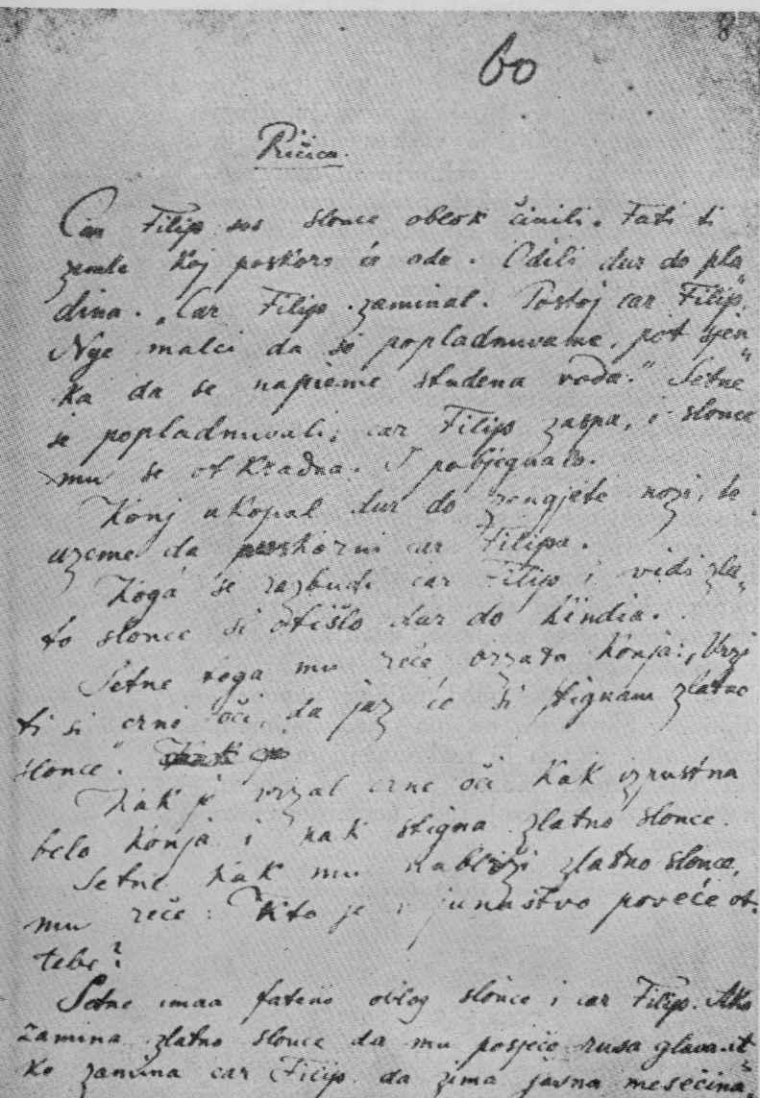 8
60
Pričica.
Car Filip sos slonce oblok činili. Fati ti
zemle koj poskoro će ode. Odili dur do pla
dina. „Car Filip zaminal. Postoj car Filip,
Nije malci da se popladnuvame, pot sjen
ka da se napieme studena voda." Setne
se popladnuvali, car Filip zaspa, i slonce
mu se otkradna. I pobjegnalo.
Konj ukopal dur do zengjete nozi, te
uzeme da car Filipa.
Koga se razbudi car Filip i vidi zla-
to slonce si otišlo dur do kindia.
Setne toga mu reče brzata konja: „Vrzi
ti si crne oči, da jaz će si stignam zlatno
slonce".
Kak je vrzal crne oči kak izpustna
belo konja i kak stigna zlatno slonce.
Setne kak mu nabliži zlatno slonce,
mu reče: Kto je junaštvo poveće ot
tebe?
Setne imaa fateno oblog slonce i car Filip. Ako
zamina zlatno slonce da mu posječe rusa glava. A
ko zamina car Filip da zima jasna mesečina,